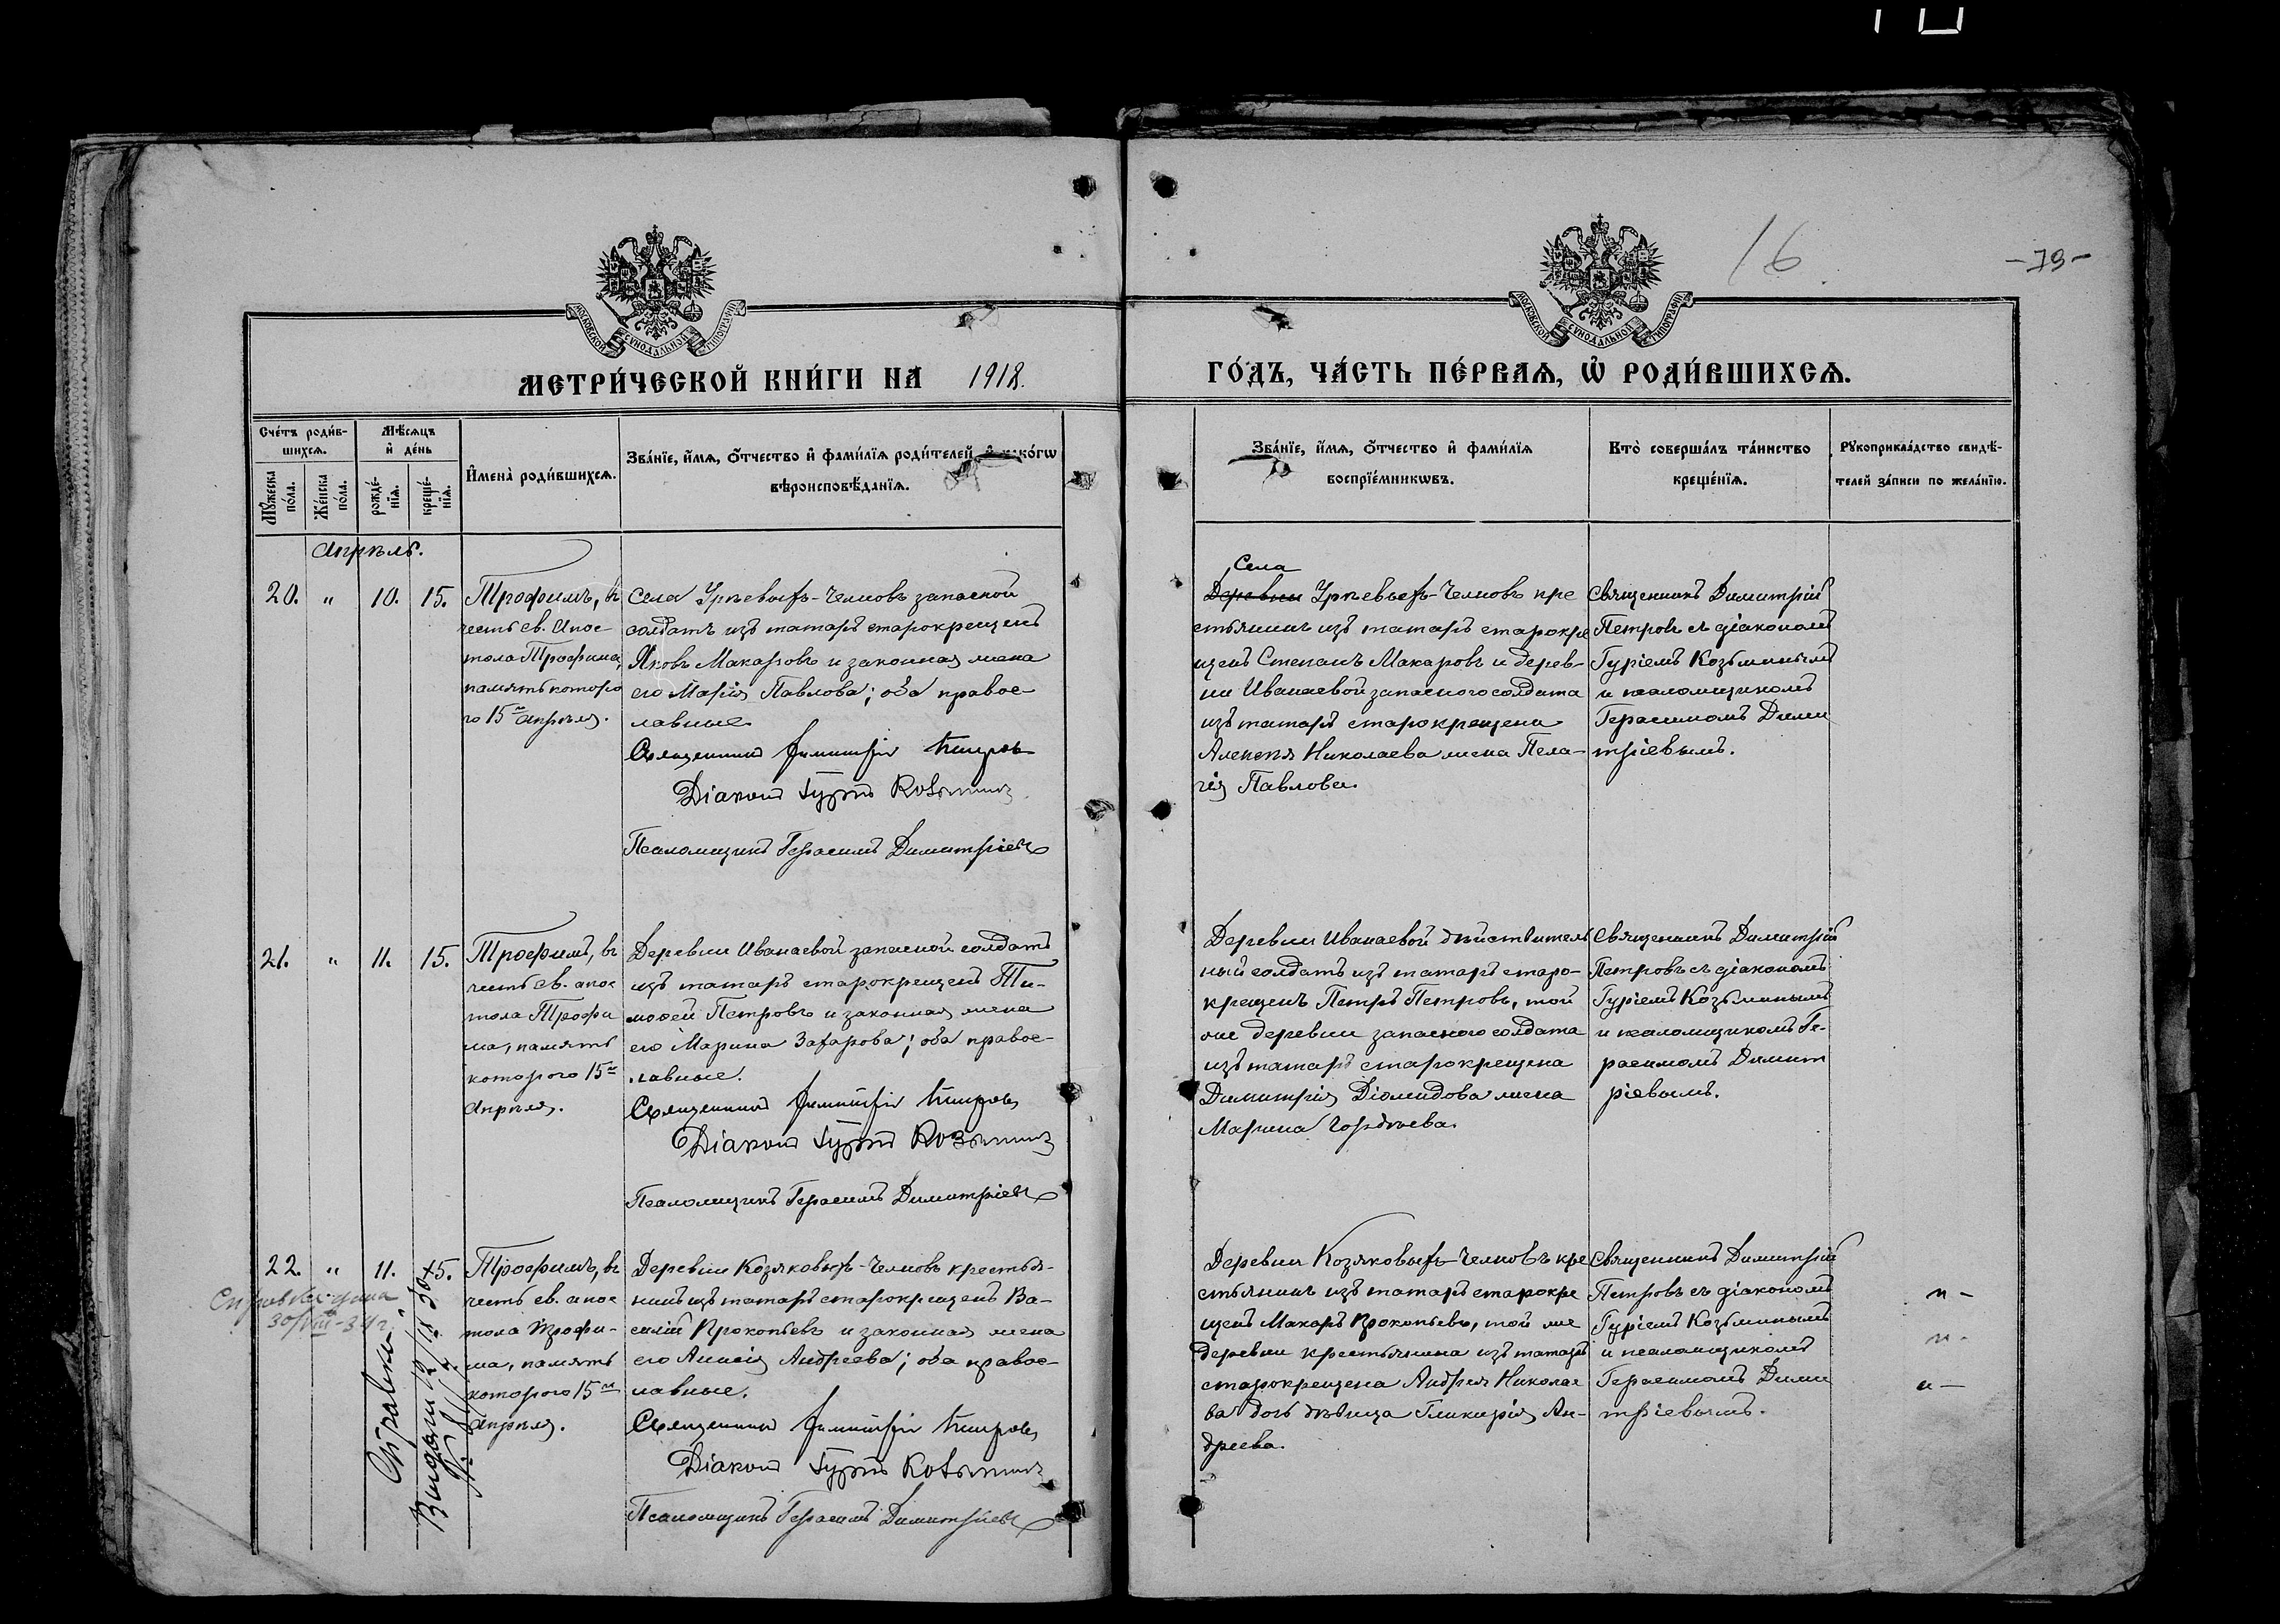 16
-79-
МОСКОВСКОЙ СѴНОДАЛЬНОЙ ТИПОГРАФІИ
МОСКОВСКОЙ СѴНОДАЛЬНОЙ ТИПОГРАФІИ
МЕТРИ́ЧЕСКОЙ КНИ́ГИ НА 1918.
ГО́ДЪ, ЧА́СТЬ ПЕ́РВАѦ, Ѡ҆ РОДИ́ВШИХСѦ.
Сче́тъ роди́в-
шихсѧ.
Мꙋ́жеска по́ла.
Же́нска по́ла.
Мѣ́сѧцъ
и҆ де́нь
рожде́-нїѧ.
креще́-нїѧ.
И҆мена̀ роди́вшихсѧ.
Зва́нїе, и҆́мѧ, ѻ҆́тчество и҆ фами́лїѧ роди́телей, и҆ како́гѡ
вѣроисповѣ́данїѧ.
Зва́нїе, и҆́мѧ, ѻ҆́тчество и҆ фами́лїѧ
воспрїе́мникѡвъ.
Кто̀ соверша́лъ та́инство
креще́нїѧ.
Рꙋкоприкла́дство свидѣ́-
телей за́писи по жела́нїю.
Апрѣль.
20. " 10. 15.
Трофимъ, въ
честь св. Апос
тола Трофима,
память которо
го 15го апрѣля.
Села Урѣевыхъ-Челновъ запасной
солдатъ изъ татаръ старокрещенъ
Яковъ Макаровъ и законная жена
его Марія Павлова; оба правос-
лавные.
Священникъ Димитрій Петровъ
Діаконъ Гурій Козьминъ
Псаломщикъ Герасимъ Димитріевъ
Села
Деревни Урѣевыхъ-Челновъ кре
стьянинъ изъ татаръ старокре
щенъ Степанъ Макаровъ и дерев-
ни Иванаевой запасного солдата
изъ татаръ старокрещена
Алексѣя Николаева жена Пела-
гія Павлова.
Священникъ Димитрій
Петровъ съ діакономъ
Гуріемъ Козьминымъ
и псаломщикомъ
Герасимомъ Дими
тріевымъ.
21. " 11. 15.
Трофимъ, въ
честь св. апос
тола Трофи
ма, память
которого 15го
Апрѣля.
Деревни Иванаевой запасной солдатъ
изъ татаръ старокрещенъ Ти-
мофей Петровъ и законная жена
его Марина Захарова; оба правос-
лавные.
Священникъ Димитрій Петровъ
Діаконъ Гурій Козьминъ
Псаломщикъ Герасимъ Димитріевъ
Деревни Иванаевой дѣйствитель
ный солдатъ изъ татаръ старо-
крещенъ Петръ Петровъ, той
же деревни запасного солдата
изъ татаръ старокрещена
Димитрія Діомидова жена
Марина Гордѣева.
Священникъ Димитрій
Петровъ съ діакономъ
Гуріемъ Козьминымъ
и псаломщикомъ Ге-
расимомъ Димит
ріевымъ.
22. " 11. 15.
Справка дана
30/VIII-34г.
Справка
Выдана 12/IX 30
Трофимъ, въ
честь св. апос
тола Трофи-
ма, память
которого 15го
Апрѣля.
Деревни Козяковыхъ-Челновъ крестья-
нинъ изъ татаръ старокрещенъ Ва-
силій Прокопьевъ и законная жена
его Анисія Андреева; оба правос-
лавные.
Священникъ Димитрій Петровъ
Діаконъ Гурій Козьминъ
Псаломщикъ Герасимъ Димитріевъ
Деревни Козяковыхъ-Челновъ кре
стьянинъ изъ татаръ старокре
щенъ Макаръ Прокопьевъ, той же
деревни крестьянина изъ татаръ
старокрещена Андрея Николае
ва дочь дѣвица Гликерія Ан-
дреева.
Священникъ Димитрій
Петровъ съ діакономъ
Гуріемъ Козьминымъ
и псаломщикомъ
Герасимомъ Дими
тріевымъ.